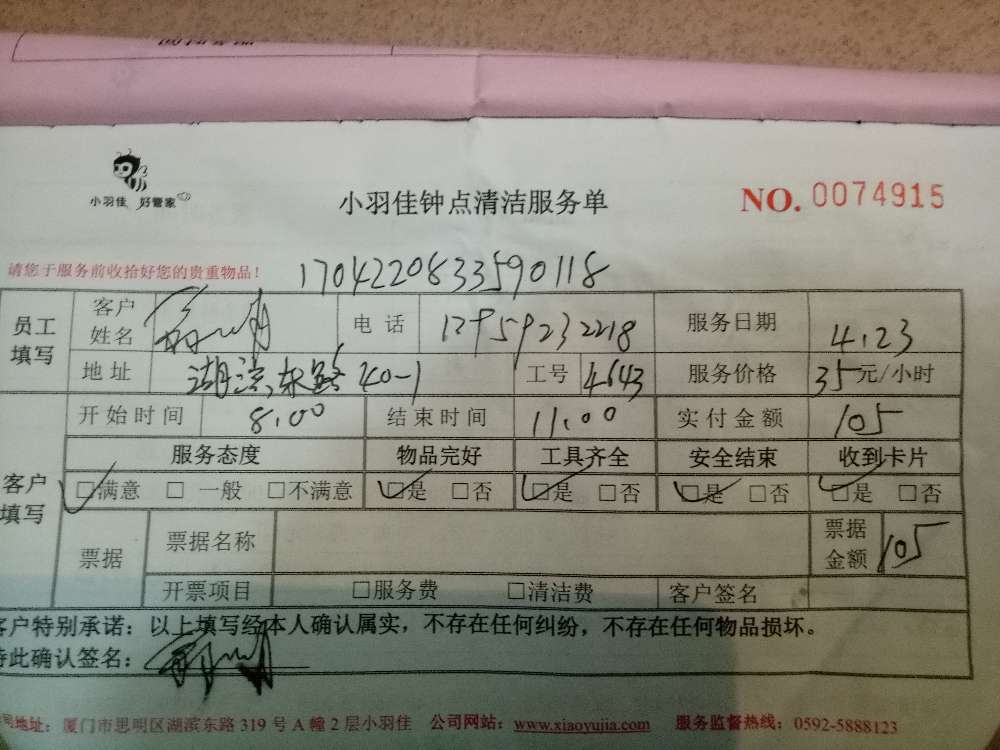 小羽佳 好管家
小羽佳钟点清洁服务单
NO. 0074915
请您于服务前收拾好您的贵重物品！
1704220833590118
员工填写 客户姓名 电话 13959232218 服务日期 4.23
地址 湖滨东路40-1 工号 4643 服务价格 35元/小时
开始时间 8:00 结束时间 11:00 实付金额 105
客户填写 服务态度 物品完好 工具齐全 安全结束 收到卡片
☑满意 □一般 □不满意 ☑是 □否 ☑是 □否 ☑是 □否 ☑是 □否
票据 票据名称 票据金额 105
开票项目 □服务费 □清洁费 客户签名
客户特别承诺：以上填写经本人确认属实，不存在任何纠纷，不存在任何物品损坏。
特此确认签名：
公司地址：厦门市思明区湖滨东路319号A幢2层小羽佳 公司网站：www.xiaoyujia.com 服务监督热线：0592-5888123